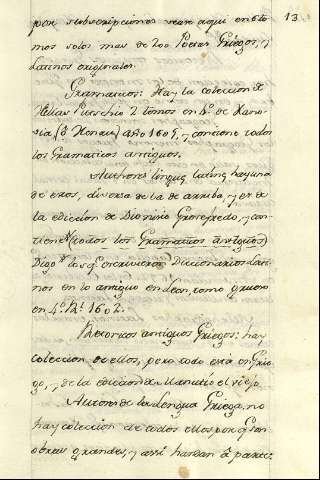 13
por subscripciones
mos solos mas de 200 Poetas Griegos, y
Latinos originales.
Gramaticos: Hay la coleccion de
Helias Putschio 2 tomos en 4.º de Hano
via (ó Henau) año 1605, y contiene todos
los Gramaticos antiguos.
Authores linguæ latinæ hay una
de esos, diversa de la de arriba, y es de
la edicion de Dionisio Gotofredo, y con-
tiene todos los Gramaticos antiguos
Digo los q.e escrivieron Diccionarios Lati-
nos en lo antiguo en Leon, como grueso
en 4.º 1602.
Retoricos antiguos Griegos: hay
coleccion de ellos, pero todo está en Grie
go, y de la edicion de Manutio el viejo.
Autores de la Lengua Griega, no
hay coleccion de todos ellos porque son
obras grandes, y assi handan á parte.